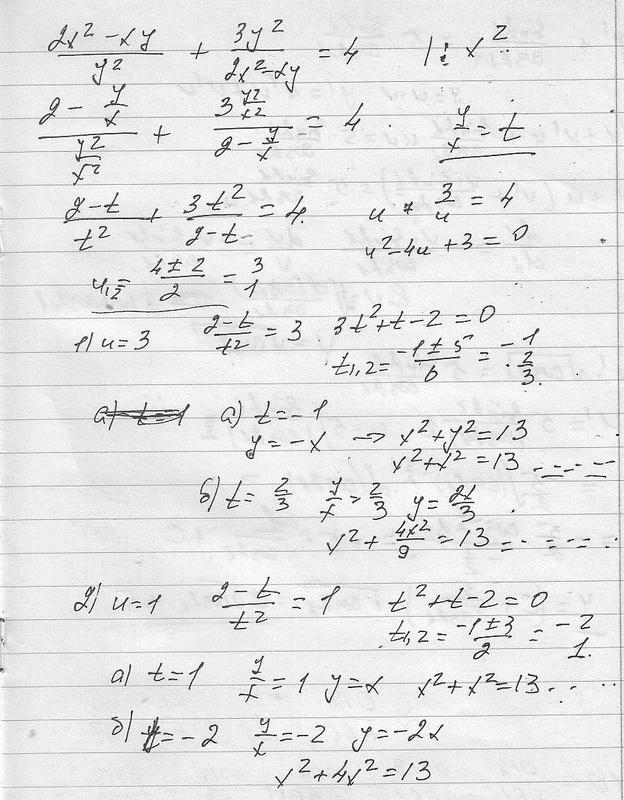 (2x² - xy)/y² + 3y²/(2x² - xy) = 4 |: x²
(2 - y/x)/(y²/x²) + (3 y²/x²)/(2 - y/x) = 4. y/x = t
(2-t)/t² + 3t²/(2-t) = 4. u + 3/u = 4
u² - 4u + 3 = 0
u₁,₂ = (4 ± 2)/2 = 3 1
1) u = 3 (2-t)/t² = 3 3t² + t - 2 = 0
t₁,₂ = (-1 ± 5)/6 = -1 2/3.
а) t = -1
y = -x → x² + y² = 13
x² + x² = 13
б) t = 2/3 y/x = 2/3 y = 2x/3
x² + 4x²/9 = 13
2) u = 1 (2-t)/t² = 1 t² + t - 2 = 0
t₁,₂ = (-1 ± 3)/2 = -2 1.
а) t = 1 y/x = 1 y = x x² + x² = 13...
б) t = -2 y/x = -2 y = -2x
x² + 4x² = 13